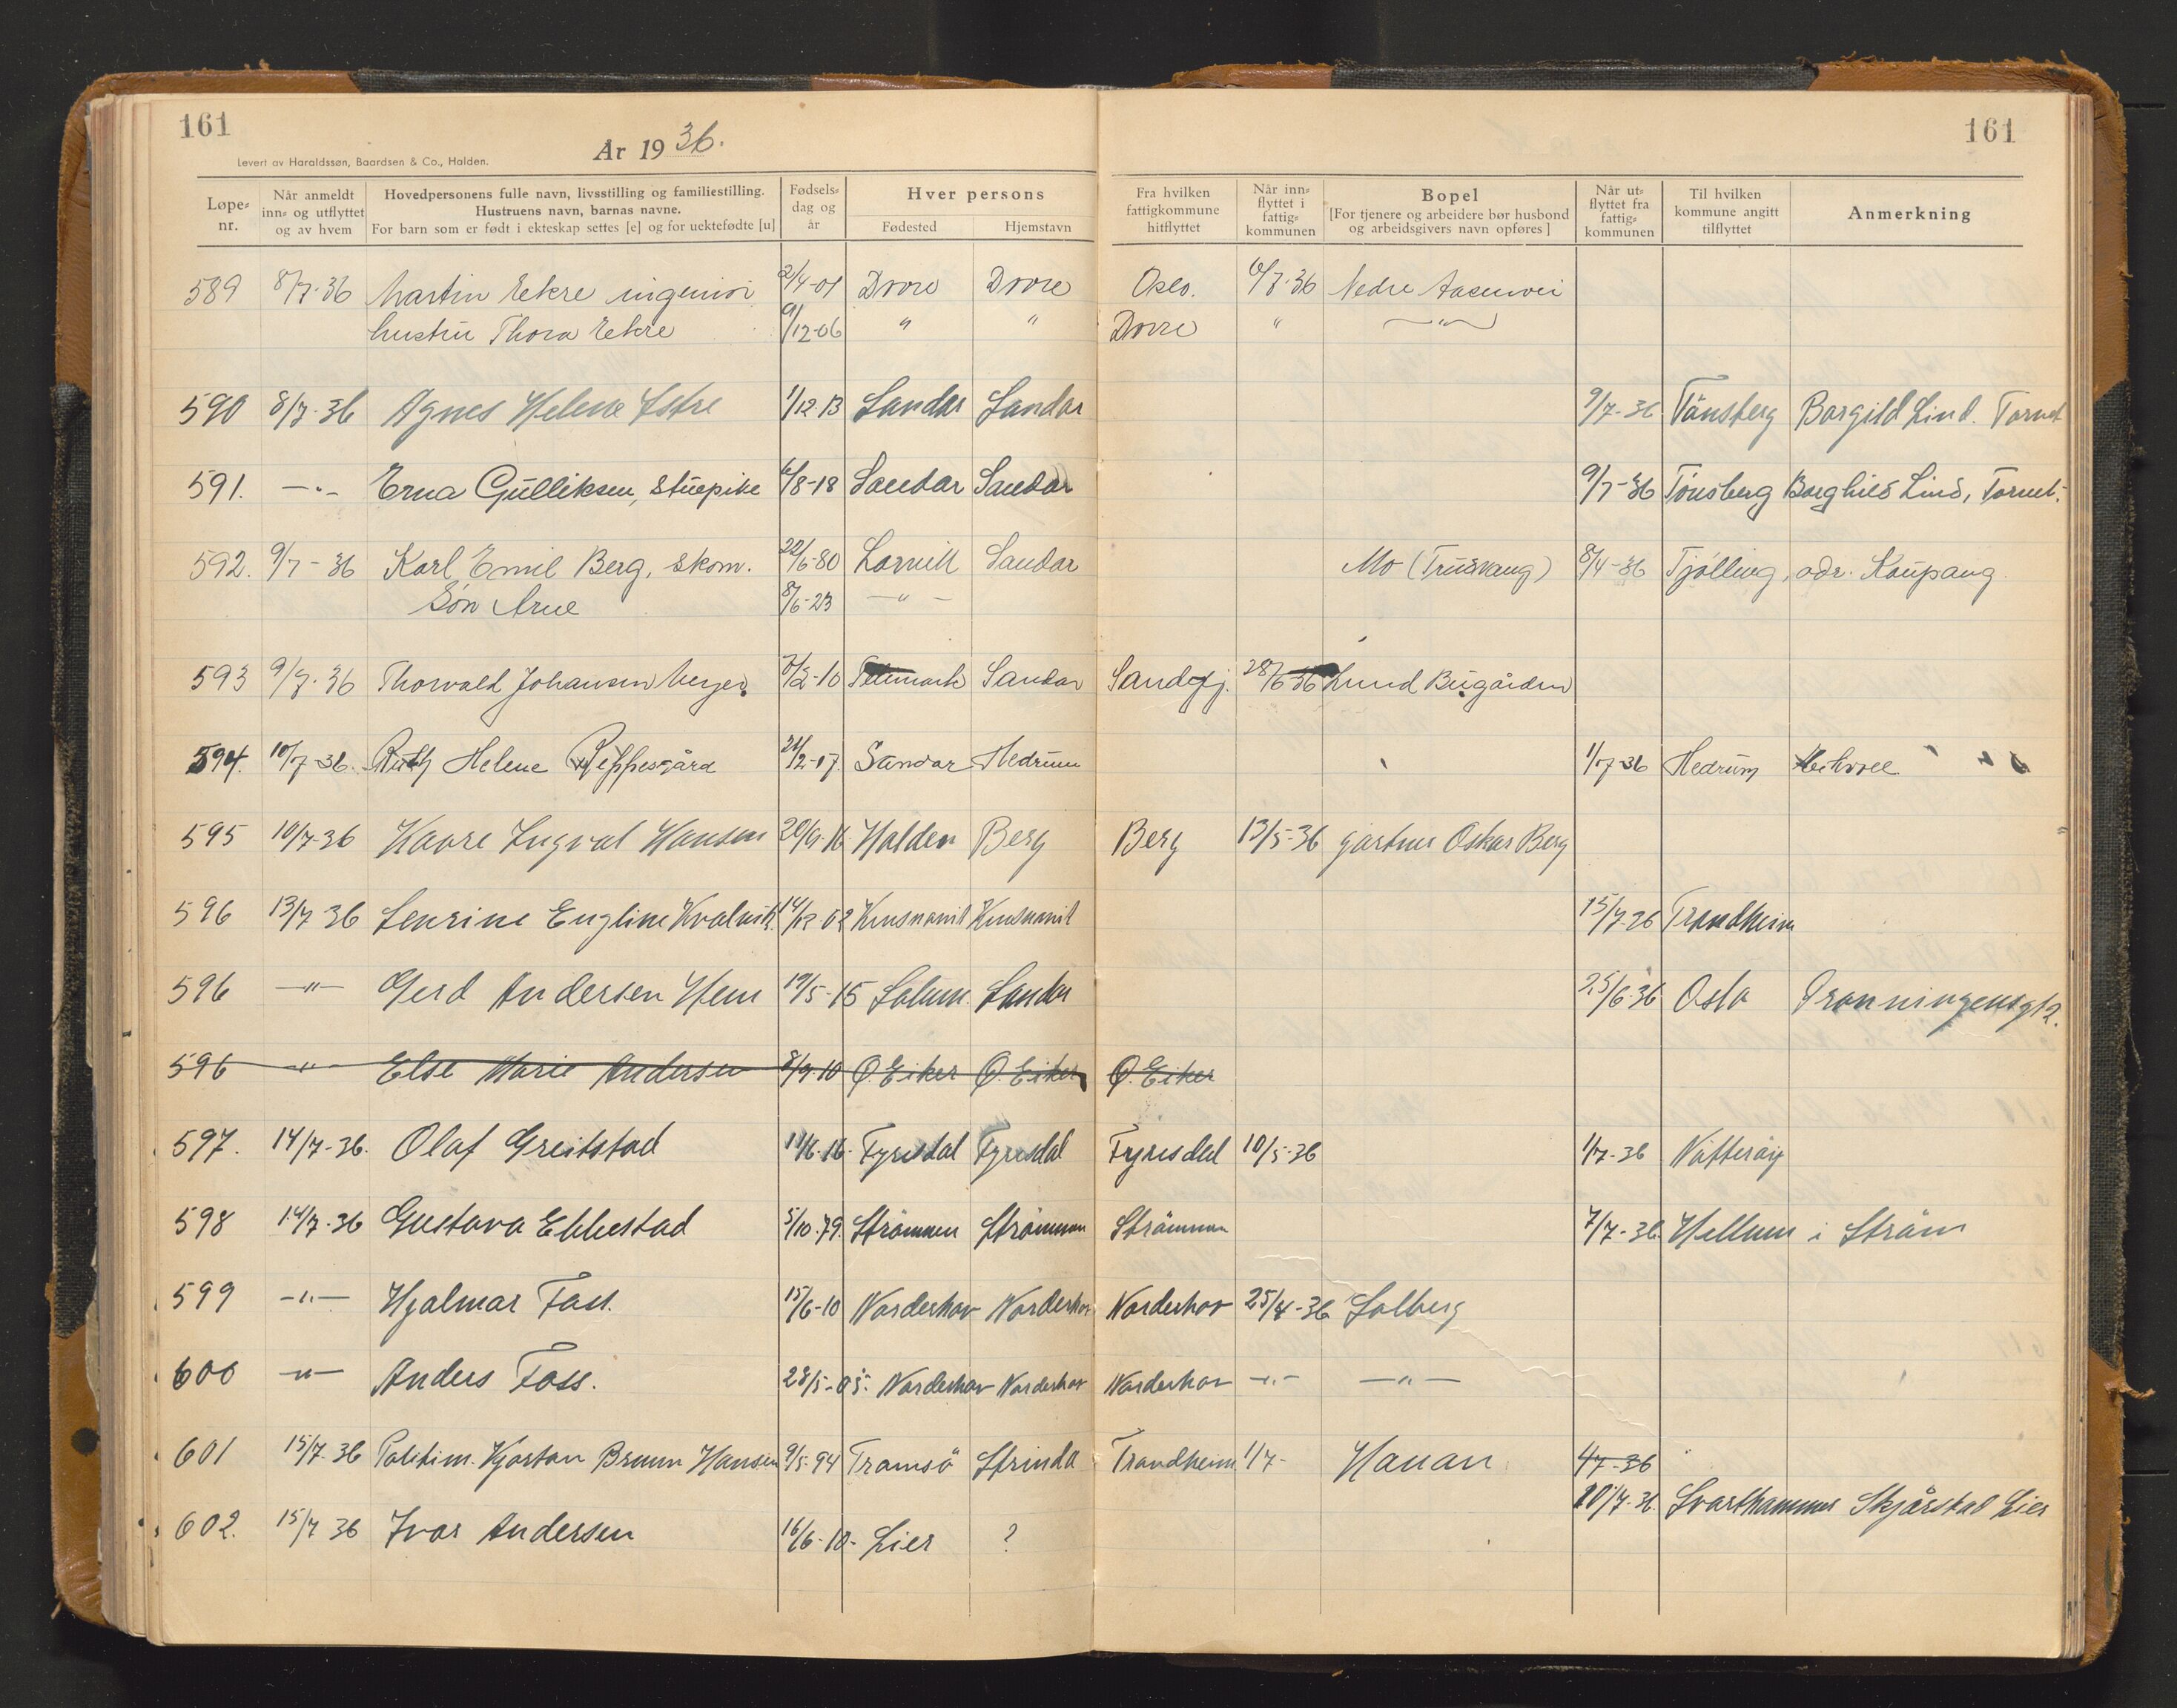 161
161
Levert av Haraldssøn, Baardsen & Co., Halden.
År 19 36.
Løpe-nr.
Når anmeldt inn- og utflyttet og av hvem
Hovedpersonens fulle navn, livsstilling og familiestilling.
Hustruens navn, barnas navne.
For barn som er født i ekteskap settes [e] og for uektefødte [u]
Fødsels-dag og år
Hver persons
Fødested
Hjemstavn
Fra hvilken fattigkommune hitflyttet
Når inn-flyttet i fattig-kommunen
Bopel
[For tjenere og arbeidere bør husbond og arbeidsgivers navn opføres]
Når ut-flyttet fra fattig-kommunen
Til hvilken kommune angitt tilflyttet
Anmerkning
589 8/7-36 Martin Eekre ingeniør 2/4-01 Dovre Dovre Oslo. 6/7-36 Nedre Aasenvei
hustru Thora Eekre 9/12-06 " " Dovre " -"-
590 8/7-36 Agnes Helene Istre 1/12 13 Sandar Sandar 9/7-36 Tönsberg Borgild Lind. Tornet
591. -"- Erna Gulliksen, stuepike 6/8-18 Sandar Sandar 9/7-36 Tönsberg Borghild Lind, Tornet.
592. 9/7-36 Karl Emil Berg, skom. 22/6-80 Larvik Sandar Mo (Trusvang) 8/4-36 Tjölling, adr. Kaupang
Sön Arne 8/6-23 -"-
593 9/7-36 Thorvald Johansen Sandar Sandefj. 28/6-36 Lund Bugården
594. 10/7-36. Ruth Helene Rippesgård 21/2-07. Sandar Hedrum 1/7-36 Hedrum
595 10/7-36 Kaare Ingval Hansen 20/9-16 Halden Berg Berg 13/5-36 gartner Oskar Berg
596 13/7 36 Lenrine Engline Kvalvik. 14/12 02 15/7-36 Trondheim
596 -"- Gerd Andersen Hem 19/5-15 Solum. Sandar 25/6-36 Oslo Dronningensgt 2.
596 -"- Else Marie Andersen 8/9-10 Ø. Eiker Ø. Eiker Ø. Eiker
597. 14/7-36. Olaf Greitstad 11/6-16. Fyresdal Fyresdal Fyresdal 10/5-36 1/7-36 Nötteröy
598 14/7-36 Gustava Ebbestad 5/10-79. Strömmen Strömmen Strömmen 7/7-36. Hellum i Ström
599 -"- Hjalmar Foss. 15/6-10 Norderhov Norderhov Norderhov 25/4-36 Solberg
600 -"- Anders Foss. 28/5-05. Norderhov Norderhov Norderhov -"- -"-
601 15/7-36 Politim. Kjartan Bruun Hansen 9/5-94 Tromsö Strinda Trondheim 1/7- Hauan 4/7-36
602. 15/7 36 Ivar Andersen 16/6-10- Lier ? 10/7-36. Svarthammer Skjårstad Lier